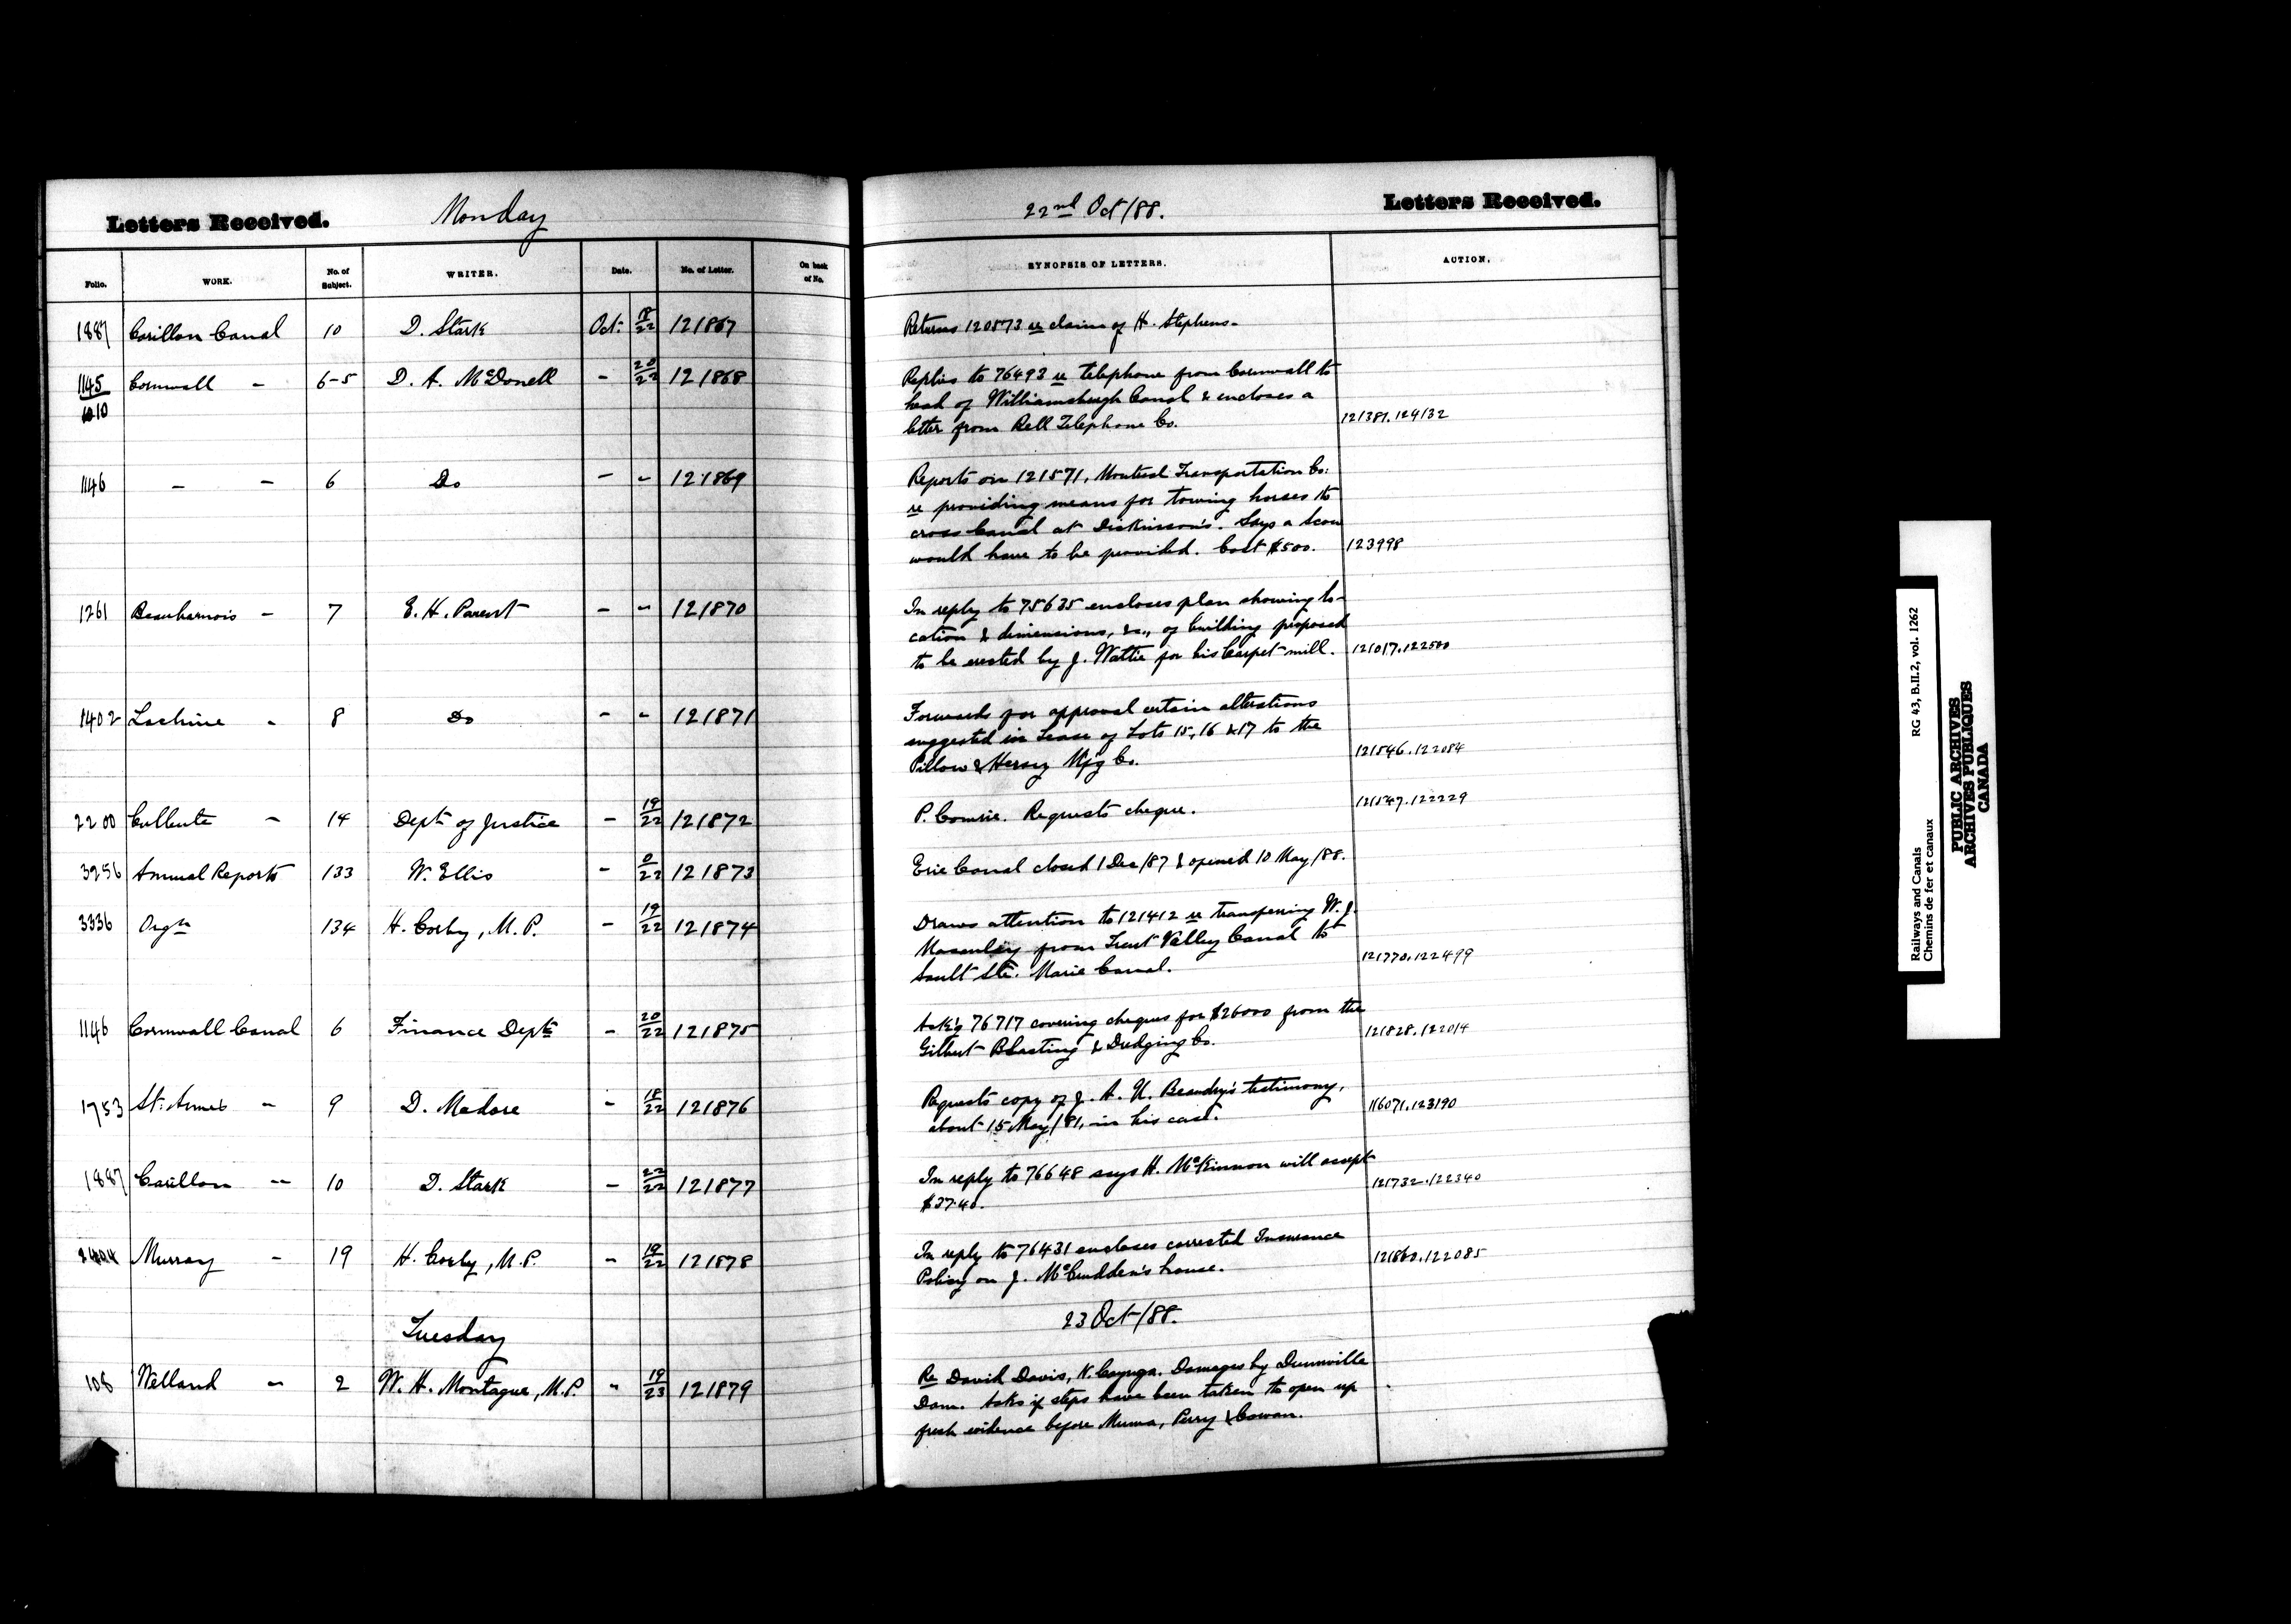 Letters Received. Monday
Folio. WORK. No. of Subject. WRITER. Date. No. of Letter. On back of No.
1887 Carillon Canal 10 D. Stark Oct: 18/22 121867
1145/1010 Cornwall - 6-5 D. A. McDonell - 20/22 121868
1146 - - 6 Do - - 121869
1261 Beauharnois - 7 E. H. Parent - - 121870
1402 Lachine - 8 Do - - 121871
2200 Culbute - 14 Dept. of Justice - 19/22 121872
3256 Annual Reports 133 W. Ellis - 0/22 121873
3336 Orgn 134 H. Corby, M.P. - 19/22 121874
1146 Cornwall Canal 6 Finance Dept - 20/22 121875
1753 St. Annes - 9 D. Madore - 18/22 121876
1887 Carillon - 10 D. Stark - 22/22 121877
Murray - 19 H. Corby, M.P. - 19/22 121878
Tuesday
108 Welland - 2 W. H. Montague, M.P. - 19/23 121879
22nd Oct/88. Letters Received.
SYNOPSIS OF LETTERS. ACTION.
Returns 120873 re claim of H. Stephens.
Replies to 76493 re telephone from Cornwall to
head of Williamsburgh Canal & encloses a
letter from Bell Telephone Co. 121381.124132
Reports on 121571, Montreal Transportation Co:
re providing means for towing horses to
cross Canal at Dickinson's. Says a Scow
would have to be provided. Cost $500. 123998
In reply to 75635 encloses plan showing lo-
cation & dimensions, &c., of building proposed
to be erected by J. Wattie for his Carpet mill. 121017.122500
Forwards for approval certain alterations
suggested in Lease of Lots 15, 16 & 17 to the
Pillow & Hersey Mfg Co. 121546.122084
P. Comrie. Requests cheque. 121547.122229
Erie Canal closed 1 Dec/87 & opened 10 May/88.
Draws attention to 121412 re transferring W. J.
Macaulay from Trent Valley Canal to
Sault Ste. Marie Canal. 121770.122499
Ack'g 76717 covering cheques for $26000 from the
Gilbert Blasting & Dredging Co. 121828.122014
Requests copy of J. A. U. Beaudry's testimony,
about 15 May/81, in his case. 116071.123190
In reply to 76648 says H. McKinnon will accept
$37.40. 121732.122340
In reply to 76431 encloses corrected Insurance
Policy on J. McCudden's house. 121860.122085
23 Oct/88.
Re David Davis, N. Cayuga. Damages by Dunnville
Dam. Asks if steps have been taken to open up
fresh evidence before Muma, Perry & Cowan.
Railways and Canals RG 43, B.II.2, vol. 1262
Chemins de fer et canaux
PUBLIC ARCHIVES
ARCHIVES PUBLIQUES
CANADA